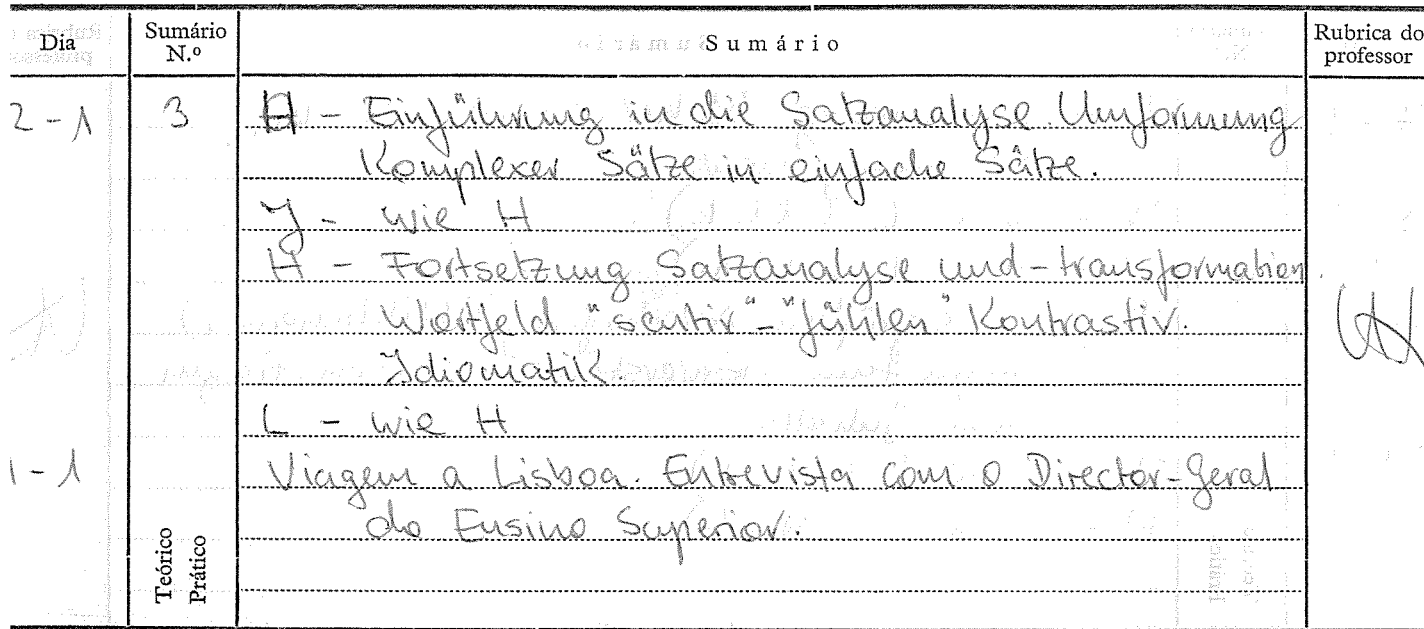 Dia Sumário N.º Sumário Rubrica do professor
2-1 3 H - Einführung in die Satzanalyse. Umformung
Komplexer Sätze in einfache Sätze.
J - wie H
H - Fortsetzung Satzanalyse und -transformation.
Wortfeld "sentir" - "fühlen" Kontrastiv.
Idiomatik.
L - wie H
1-1 Viagem a Lisboa. Entrevista com o Director-Geral
do Ensino Superior.
Teórico
Prático